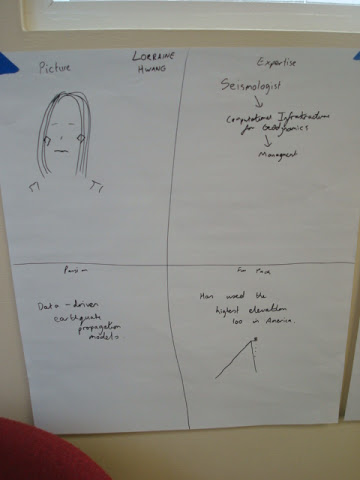 Picture
LORRAINE
HWANG
Expertise
Seismologist
Computational Infrastructure
for Geodynamics
Managment
Passion
Data-driven
earthquake
propagation
models
Fun Fact
the
highest elevation
in America.